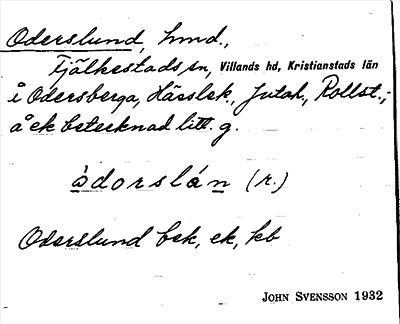 Oderslund, hmd.,
Fjälkestads sn, Villands hd, Kristianstads län
å Odersberga, Hässlek., Jutah., Rollst.;
å ek betecknad litt. g.
àdorslán (r.)
Oderslund bsk, ek, kb
JOHN SVENSSON 1932